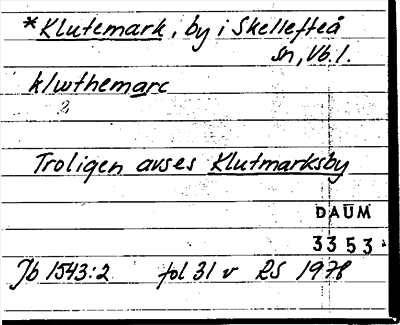 *Klutemark, by i Skellefteå
sn, Vb. l.
klwthemarc
Troligen avses Klutmarksby
DAUM
3353
Jb 1543:2 fol 31 v RS 1978